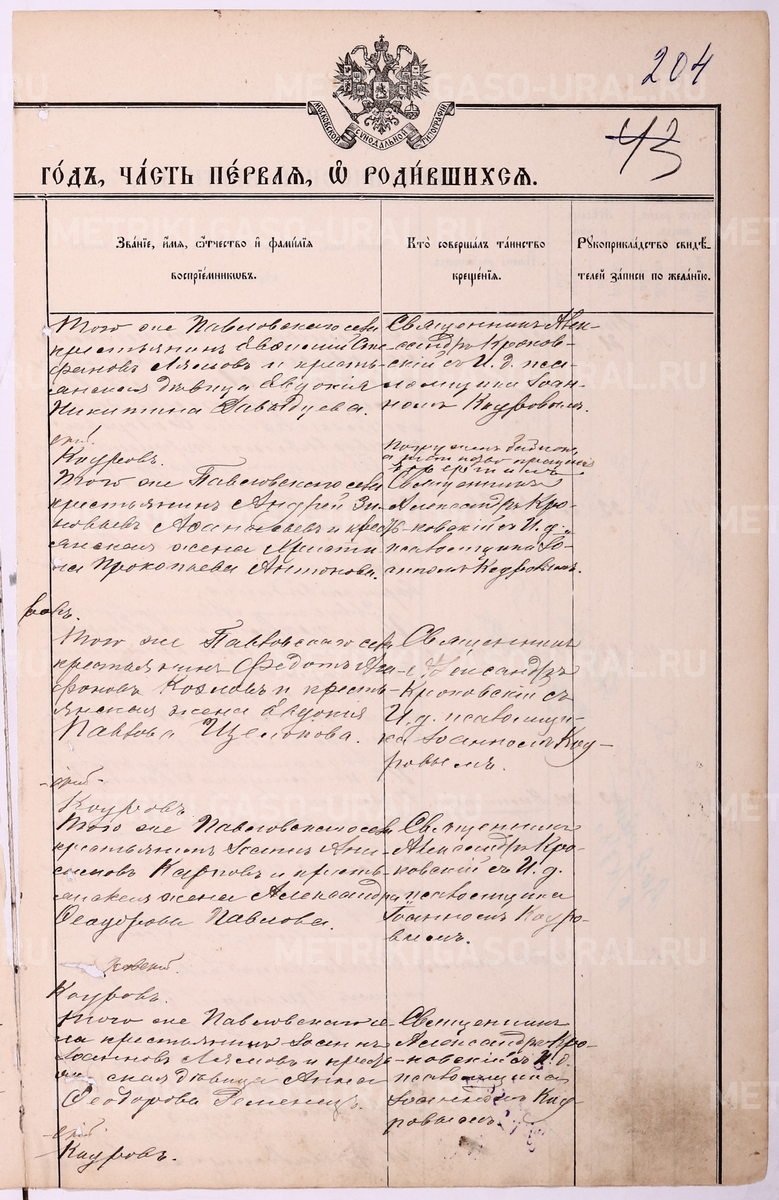 204
43
МОСКОВСКОЙ СУНОДАЛЬНОЙ ТИПОГРАФІИ
ГО́ДЪ, ЧА́СТЬ ПЕ́РВАѦ, Ѡ҆ РОДИ́ВШИХСѦ.
Зва́нїе, и҆́мя, ѻ҆́тчество и҆ фами́лїя
воспрїе́мниковъ.
Кто̀ соверша́лъ та́инство
креще́нїя.
Рꙋкоприкла́дство свидѣ́-
телей за́писи по жела́нїю.
Того же Павловскаго села
крестьянинъ Евфимій Сте-
фановъ Лямовъ и кресть-
янская дѣвица Евдокія
Никитина Давыдцева.
Священникъ Алек-
сандръ Кроков-
скій съ И. д. пса-
ломщика Іоан-
номъ Кауровымъ.
Кауровъ.
Того же Павловскаго села
крестьянинъ Андрей Зи-
новьевъ Аѳанасьевъ и крес
янская жена Христи
на Прокопьева Антонова.
Священникъ
Александръ Кро-
ковскій съ И. д.
псаломщика Іо-
анномъ Кауровымъ.
Того же Павловскаго села
крестьянинъ Федотъ Ага-
фоновъ Козловъ и кресть-
янская жена Евдокія
Павлова Щелокова.
Священникъ
Александръ
Кроковскій съ
И. д. псаломщи-
ка Іоанномъ Кау-
ровымъ.
Кауровъ.
Того же Павловскаго села
крестьянинъ Іоаннъ Ани-
симовъ Карповъ и кресть-
янская жена Александра
Ѳеодорова Павлова.
Священникъ
Александръ Кро-
ковскій съ И. д.
псаломщика
Іоанномъ Кауро-
вымъ.
Кауровъ.
Того же Павловскаго се-
ла крестьянинъ Іоаннъ
Іоанновъ Лямовъ и крес
ская дѣвица Анна
Ѳеодорова
Священникъ
Александръ Кро-
ковскій съ И. д.
псаломщика
Іоанномъ Кау-
ровымъ.
Кауровъ.
METRIKI.GASO-URAL.RU